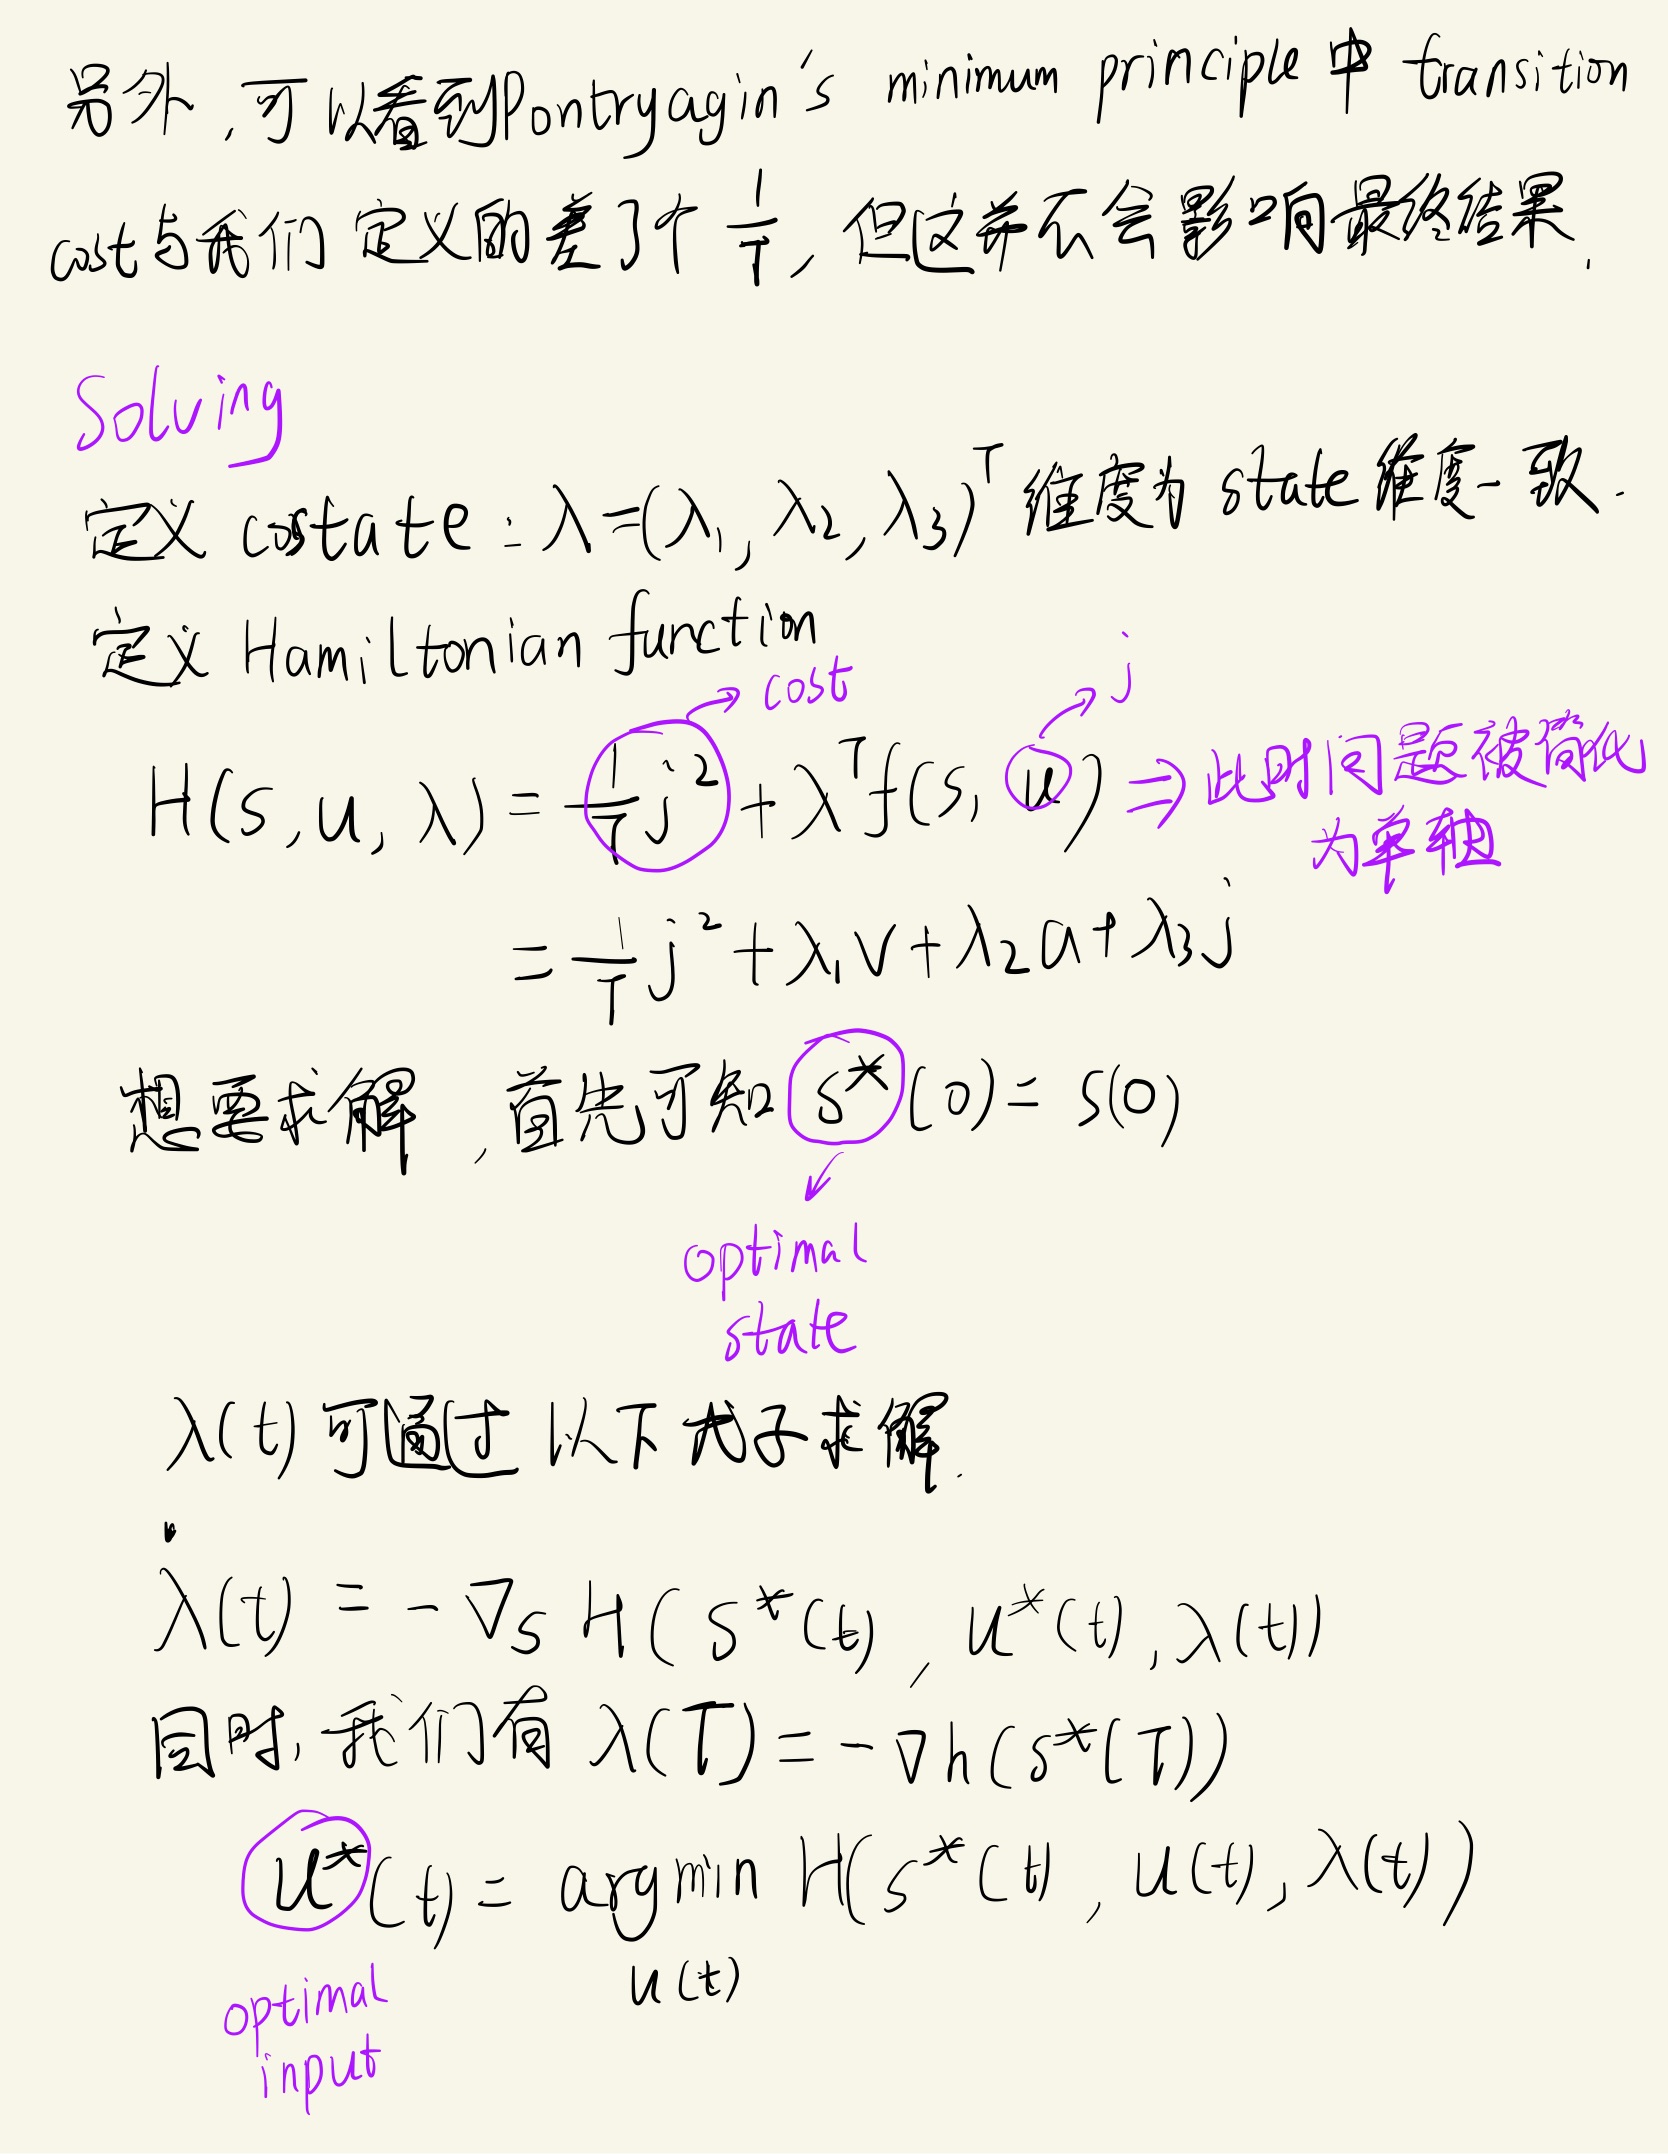 另外,可以看到Pontryagin's minimum principle 中 transition
cost与我们定义的差了个 1/T, 但这并不会影响最终结果.
Solving
定义 costate : λ=(λ₁, λ₂, λ₃)ᵀ 维度为 state 维度一致.
定义 Hamiltonian function
cost
j
H(s, u, λ) = 1/T j² + λᵀf(s, u) ⇒ 此时问题被简化
为单轴
= 1/T j² + λ₁v + λ₂a + λ₃j
想要求解, 首先可知 s*(0) = s(0)
optimal
state
λ(t) 可通过以下式子求解.
λ̇(t) = - ∇s H(s*(t), u*(t), λ(t))
同时, 我们有 λ(T) = - ∇h(s*(T))
u*(t) = arg min H(s*(t), u(t), λ(t))
u(t)
optimal
input